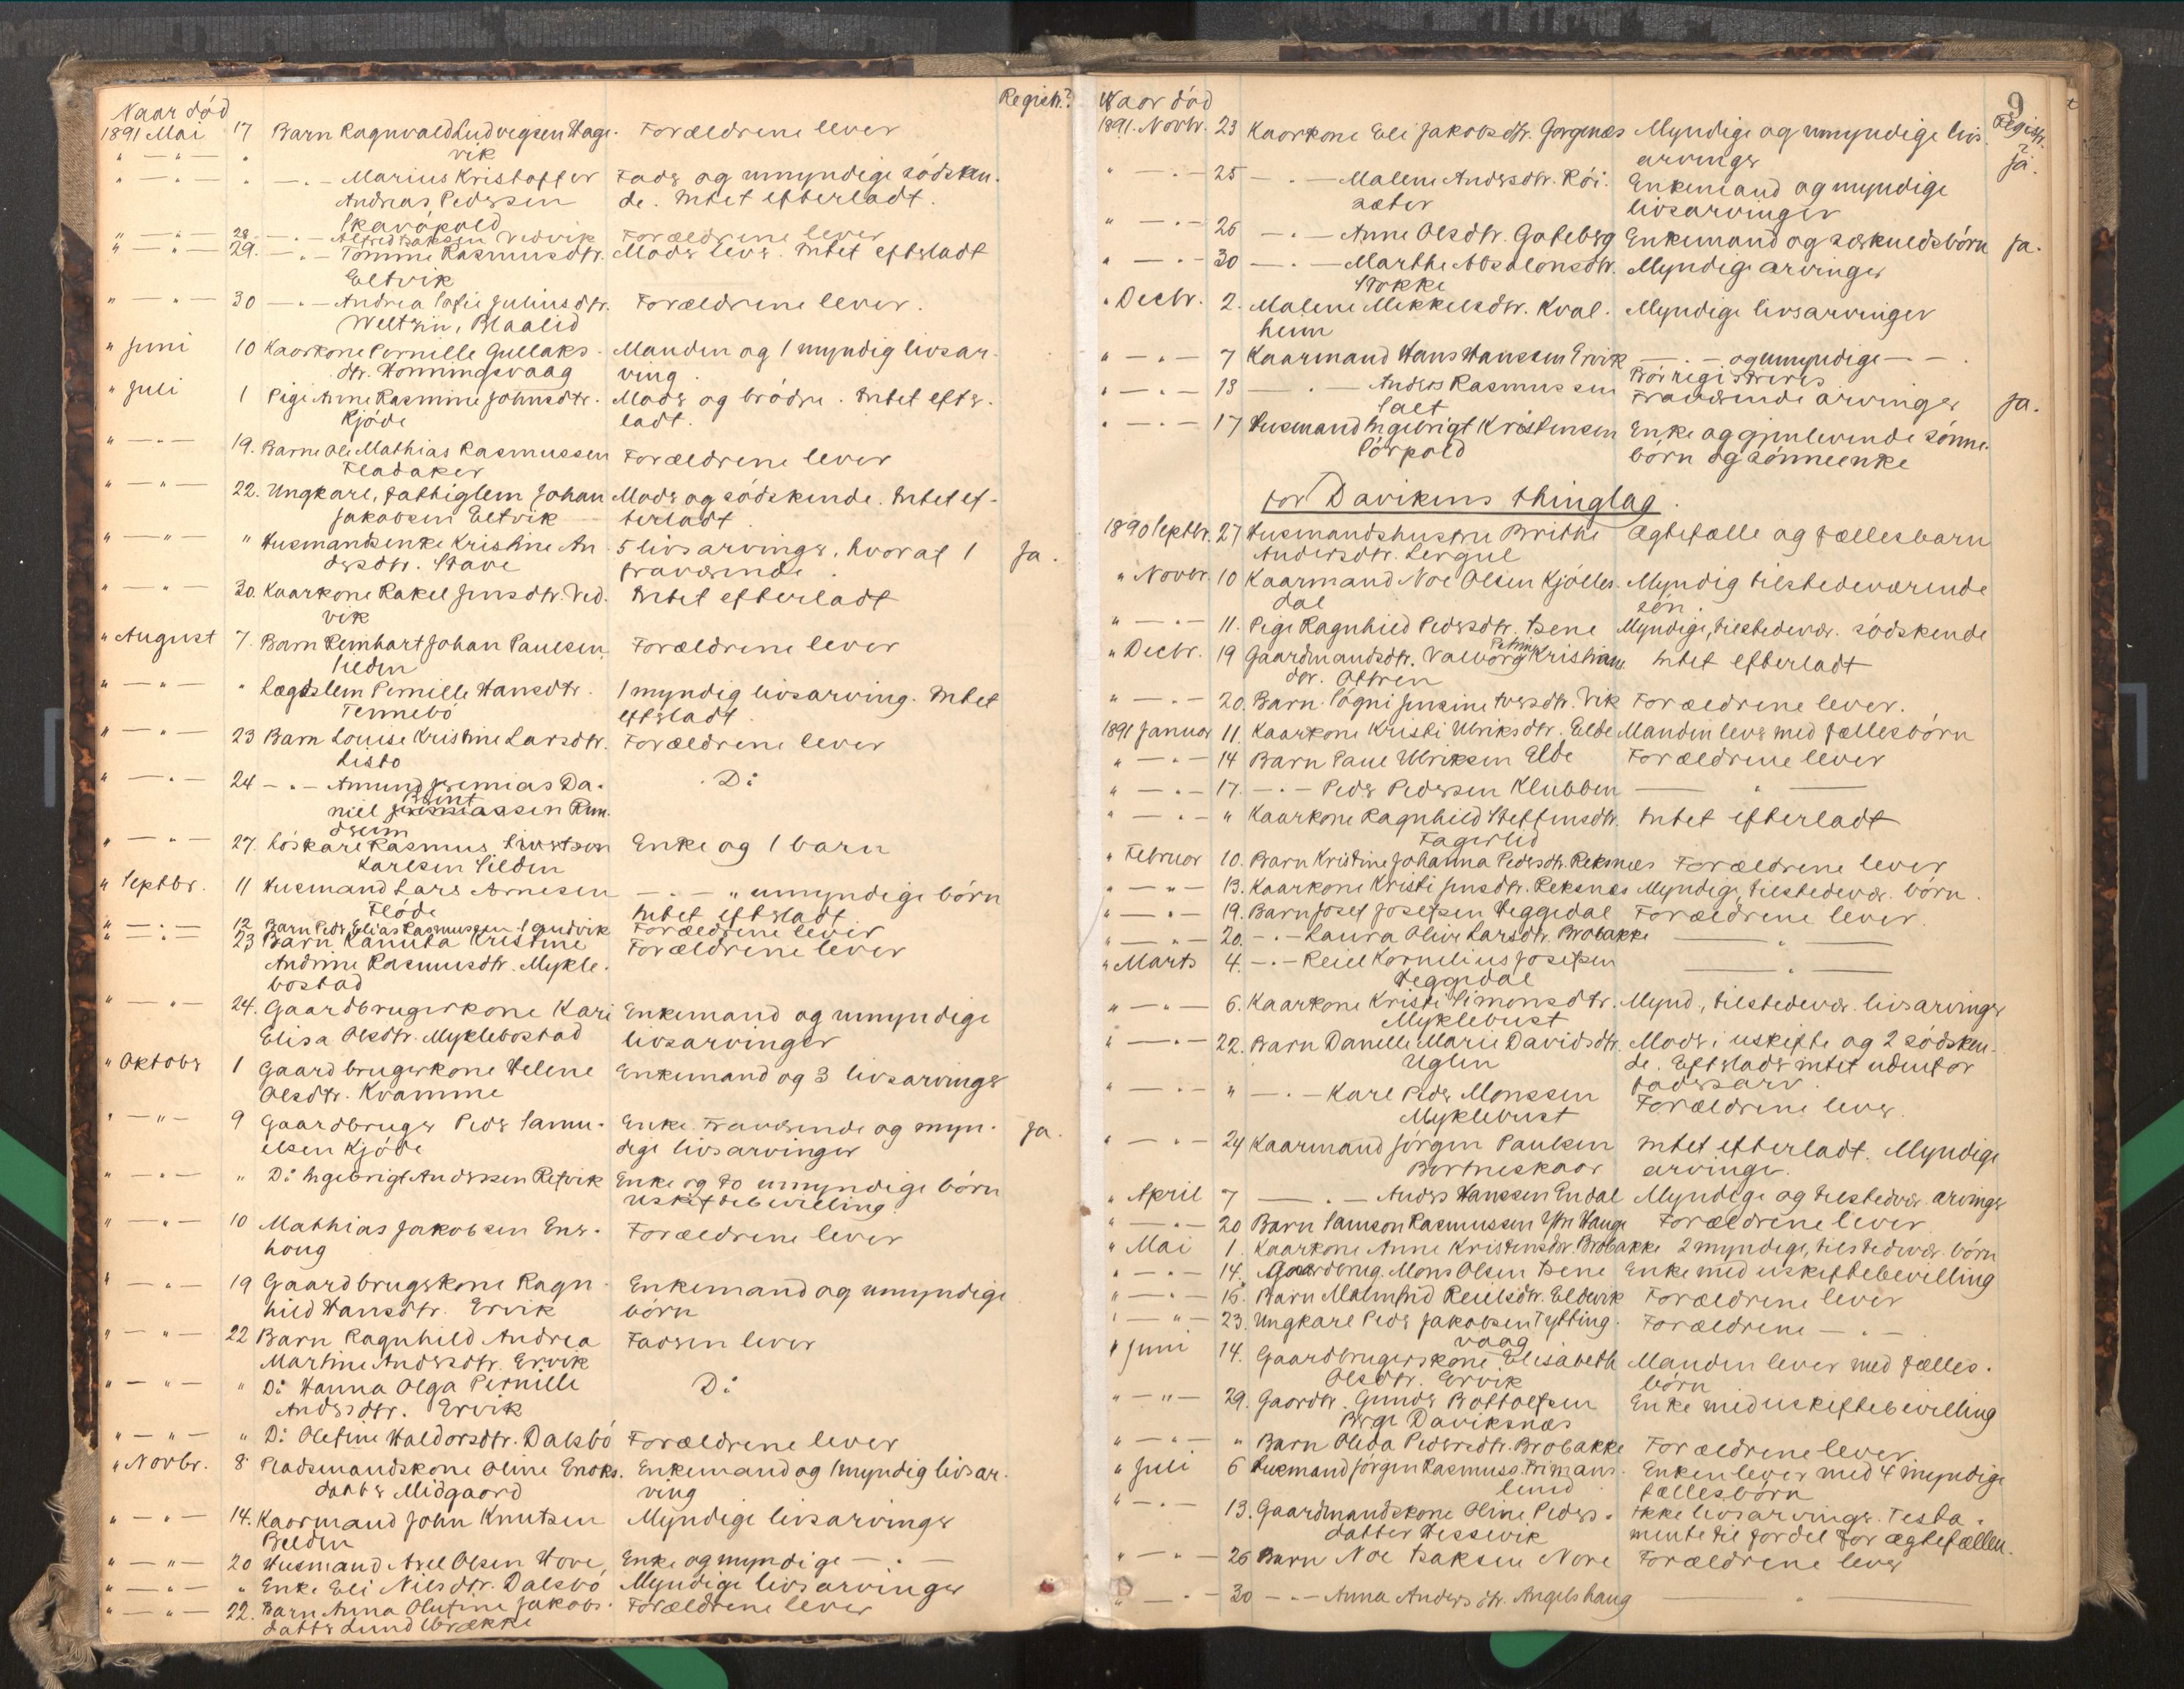 Naar død
Registr.?
1891 Mai 17 Barn Ragnvald Ludvigsen Hage- Forældrene lever
vik
" — " — " — " — Marius Kristoffer Fader og umyndige sødsken-
Andreas Pedersen de. Intet efterladt.
Skavøpold
" — " — 28 — " — Alfred Isaksen Vedvik Forældrene lever
" — " — 29. — " — Tomine Rasmusdtr. Moder lever. Intet efterladt
Eltvik
" — " — 30 — " — Andrea Sofie Juliusdtr. Forældrene lever.
Weltzin, Blaalid
" Juni 10 Kaarkone Pernille Gullaks- Manden og 1 myndig livsar-
dtr. Honningsvaag ving.
" Juli 1 Pige Anne Rasmine Johnsdtr. Moder og brødre. Intet efter-
Kjøde ladt.
" — " — 19. Barn Ole Mathias Rasmussen Forældrene lever
Fladaker
" — " — 22. Ungkarl, fattiglem Johan Moder og sødskende. Intet ef-
Jakobsen Eltvik terladt.
" — " — " Husmandsenke Kristine An- 5 livsarvinger, hvoraf 1 Ja.
dersdtr. Stave fraværende.
" — " — 30. Kaarkone Rakel Jensdtr. Ved- Intet efterladt
vik
" August 7. Barn Reinhart Johan Paulsen Forældrene lever
Silden
" — " — " Lægdslem Pernille Hansdtr. 1 myndig livsarving. Intet
Tennebø efterladt.
" — " — 23 Barn Louise Kristine Larsdtr. Forældrene lever
Listo
" — " — 24 — " — Amund Jeremias Da- Do
niel Bent Jeremiassen Run-
dreim
" — " — 27. Løskarl Rasmus Sivertson Enke og 1 barn
Karlsen Silden
" Septbr. 11 Husmand Lars Arnesen — " — " umyndige børn
Fløde Intet efterladt.
" — " — 12 Barn Peder Elias Rasmussen Sandvik Forældrene lever
" — " — 23 Barn Kanuta Kristine Forældrene lever
Andrine Rasmusdtr. Mykle-
bostad
" — " — 24. Gaardbrugerkone Kari Enkemand og umyndige
Elisa Olsdtr. Myklebostad livsarvinger
" Oktober 1 Gaardbrugerkone Helene Enkemand og 3 livsarvinger
Olsdtr. Kvamme
" — " — 9 Gaardbruger Peder Samu- Enke. Fraværende og myn- Ja.
elsen Kjøde dige livsarvinger
" — " — " Do Ingebrigt Anderssen Refvik Enke og to umyndige børn
uskiftebevilling.
" — " — 10 Mathias Jakobsen Ener- Forældrene lever
houg
" — " — 19 Gaardbrugerkone Ragn- Enkemand og umyndige
hild Hansdtr. Ervik børn
" — " — 22 Barn Ragnhild Andrea Faderen lever
Martine Andersdtr. Ervik
" — " — " Do Hanna Olga Pernille Do
Andersdtr. Ervik
" — " — " Do Olefine Haldorsdtr. Dalsbø Forældrene lever
" Novbr. 8 Pladsmandskone Oline Enoks- Enkemand og 1 myndig livsar-
datter Midgaard ving
" — " — 14. Kaarmand John Knutsen Myndige livsarvinger
Belden
" — " — 20 Husmand Axel Olsen Hove Enke og myndige — " —
" — " — " Enke Eli Nilsdtr. Dalsbø Myndige livsarvinger
" — " — 22. Barn Anna Olufine Jakobs- Forældrene lever
datter Lundebrække
9
Naar død
Registr.?
1891. Novbr. 23 Kaarkone Eli Jakobsdtr. Gorgenæs Myndige og umyndige livs- Ja.
arvinger
" — " — 25 — " — Malene Andersdtr. Röi- Enkemand og myndige
sæter livsarvinger
" — " — 26 — " — Anne Olsdtr. Goteberg Enkemand og særkuldsbørn Ja.
" — " — 30 — " — Marthe Absalonsdtr. Myndige arvinger
Stokke
" Decbr. 2. Malene Mikkelsdtr. Kval- Myndige livsarvinger
heim
" — " — 7 Kaarmand Hans Hanssen Ervik — " — og umyndige — " —
Bör registreres
" — " — 13 — " — Anders Rasmussen Fraværende arvinger Ja.
Salt
" — " — 17 Husmand Ingebrigt Kristensen Enke og gjenlevende sønne-
Pørpold børn og sønneenke
for Davikens thinglag.
1890 Septbr. 27 Husmandshustru Brithe Ægtefælle og fællesbarn
Andersdtr. Lergul
" Novbr. 10 Kaarmand Noe Olsen Kjølles- Myndig tilstedeværende
dal søn.
" — " — 11. Pige Ragnhild Pedersdtr. Isene Myndige, tilstedevær. sødskende
" Decbr. 19 Gaardmandsdtr. Valborg Petrine Kristiane Intet efterladt
dtr. Oftren
" — " — 20. Barn Sögni Jensine Iversdtr. Vik Forældrene lever.
1891 Januar 11. Kaarkone Kristi Ulriksdtr. Elde Manden lever med fællesbørn
" — " — 14 Barn Paul Ulriksen Elde Forældrene lever
" — " — 17. — " — Peder Pedersen Klubben — " —
" — " — " Kaarkone Ragnhild Steffensdtr. Intet efterladt
Fagerlid
" Februar 10. Barn Kristine Johanna Pedersdtr. Reksnæs Forældrene lever
" — " — 13. Kaarkone Kristi Jensdtr. Reksnæs Myndige, tilstedevær. børn.
" — " — 19. Barn Josef Josefsen Heggedal Forældrene lever.
" — " — 20. — " — Laura Olive Larsdtr. Brobakke — " —
" Marts 4. — " — Reiel Kornelius Josefsen — " —
Heggedal
" — " — 6. Kaarkone Kristi Simonsdtr. Mynd., tilstedevær. livsarvinger
Myklebust
" — " — 22. Barn Danelle Marie Davidsdtr. Moder i uskifte og 2 sødsken-
Uglen de. Efterlader intet udenfor
fadersarv.
" — " — " — " — Karl Peder Monssen Forældrene lever.
Myklebust
" — " — 24 Kaarmand Jørgen Paulsen Intet efterladt. Myndige
Bortneskaar arvinger.
" April 7 — " — Anders Hanssen Endal Myndige og tilstedevær. arvinger
" — " — 20 Barn Samson Rasmussen Ytre Hauge Forældrene lever
" Mai 1. Kaarkone Anne Kristensdtr. Brobakke 2 myndige, tilstedevær. børn
" — " — 14. Gaardbrug. Mons Olsen Isene Enke med uskiftebevilling
" — " — 16. Barn Malmfrid Reielsdtr. Eldevik Forældrene lever
" — " — 23. Ungkarl Peder Jakobsen Tytting- Forældrene — " —
vaag
" Juni 14. Gaardbrugerskone Elisabeth Manden lever med fælles-
Olsdtr. Ervik børn
" — " — 29. Gaardbr. Gunder Bottolfsen Enke med uskiftebevilling
Berge Daviksnæs
" — " — " Barn Oleda Pedersdtr. Brobakke Forældrene lever
" Juli 6 Husmand Jørgen Rasmuss. Frimans- Enken lever med 4 myndige
lund fællesbørn
" — " — 13. Gaardmandskone Oline Peders- Ikke livsarvinger. Testa-
datter Hessevik mente til fordel for ægtefællen.
" — " — 26 Barn Noe Isaksen Nore Forældrene lever
" — " — 30 — " — Anna Andersdtr. Angelshaug — " —